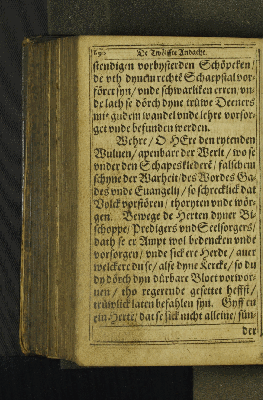 De Twölffte Andacht.
stendigen vorbysterden Schöpcken/
de vth dynem rechte Schaepstal vor-
föret syn/ vnde schwarliken erren/ vn-
de lath se dörch dyne trüwe Deeners
mit gudem wandel vnde lehre vorsor-
get vnde befunden werden.
Wehre/ O HEre den rytenden
Wuluen/ apenbarer der Werlt/ wo se
vnder den Schapeskledere/ falschem
schyne der Warheit/ des Wordes Ga-
des vnde Euangelij/ so schrecklick dat
Volck vorfören/ thoryten vnde wör-
gen. Bewege de Herten dyner Bi-
schoppe/ Predigers vnd Seelsorgers/
dath se er Ampt wol bedencken vnde
vorsorgen/ vnde sick ere Herde/ auer
welckere du se/ alse dyne Kercke/ so du
dy dörch dyn dürbare Bloet vorwor-
uen/ tho regerende gesettet hefft/
trüwlick laten befahlen syn. Gyff en
ein Herte/ dat se sick nicht alleine/ sün-
der